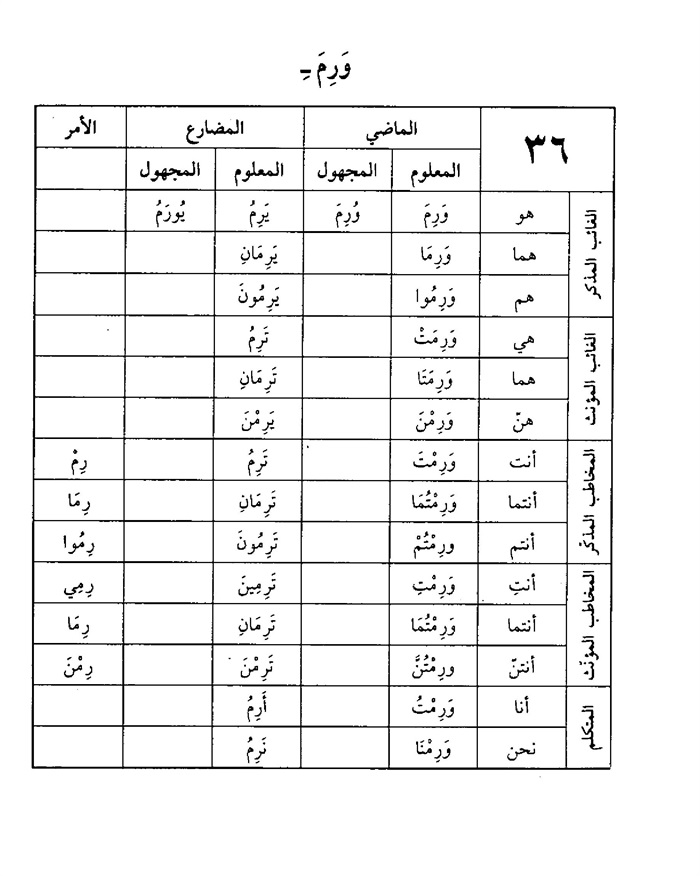 وَرِمَ ـِ
٣٦ الماضي المضارع الأمر
المعلوم المجهول المعلوم المجهول
الغائب المذكر
هو وَرِمَ وُرِمَ يَرِمُ يُورَمُ
هما وَرِمَا يَرِمَانِ
هم وَرِمُوا يَرِمُونَ
الغائب المؤنث
هي وَرِمَتْ تَرِمُ
هما وَرِمَتَا تَرِمَانِ
هنّ وَرِمْنَ يَرِمْنَ
المخاطب المذكر
أنت وَرِمْتَ تَرِمُ رِمْ
أنتما وَرِمْتُمَا تَرِمَانِ رِمَا
أنتم ورِمْتُمْ تَرِمُونَ رِمُوا
المخاطب المؤنث
أنتِ وَرِمْتِ تَرِمِينَ رِمِي
أنتما وَرِمْتُمَا تَرِمَانِ رِمَا
أنتنّ ورِمْتُنَّ تَرِمْنَ رِمْنَ
المتكلم
أنا وَرِمْتُ أَرِمُ
نحن وَرِمْنَا نَرِمُ